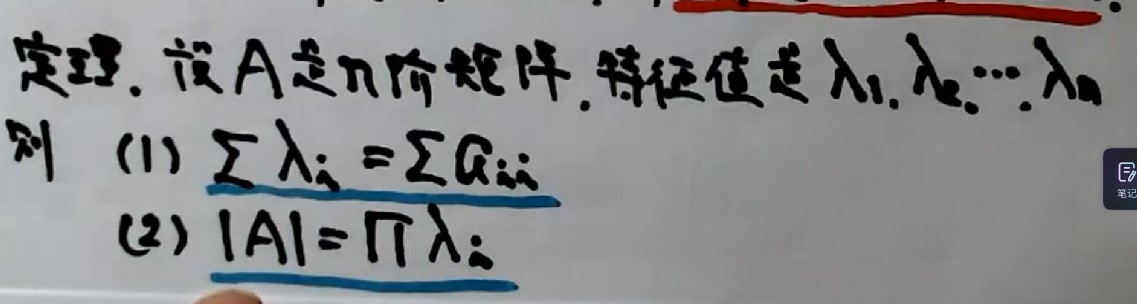 定理. 设A是n阶矩阵.特征值是λ₁.λ₂.….λₙ
则 (1) Σλᵢ=Σaᵢᵢ
(2) |A|=Πλᵢ
笔记